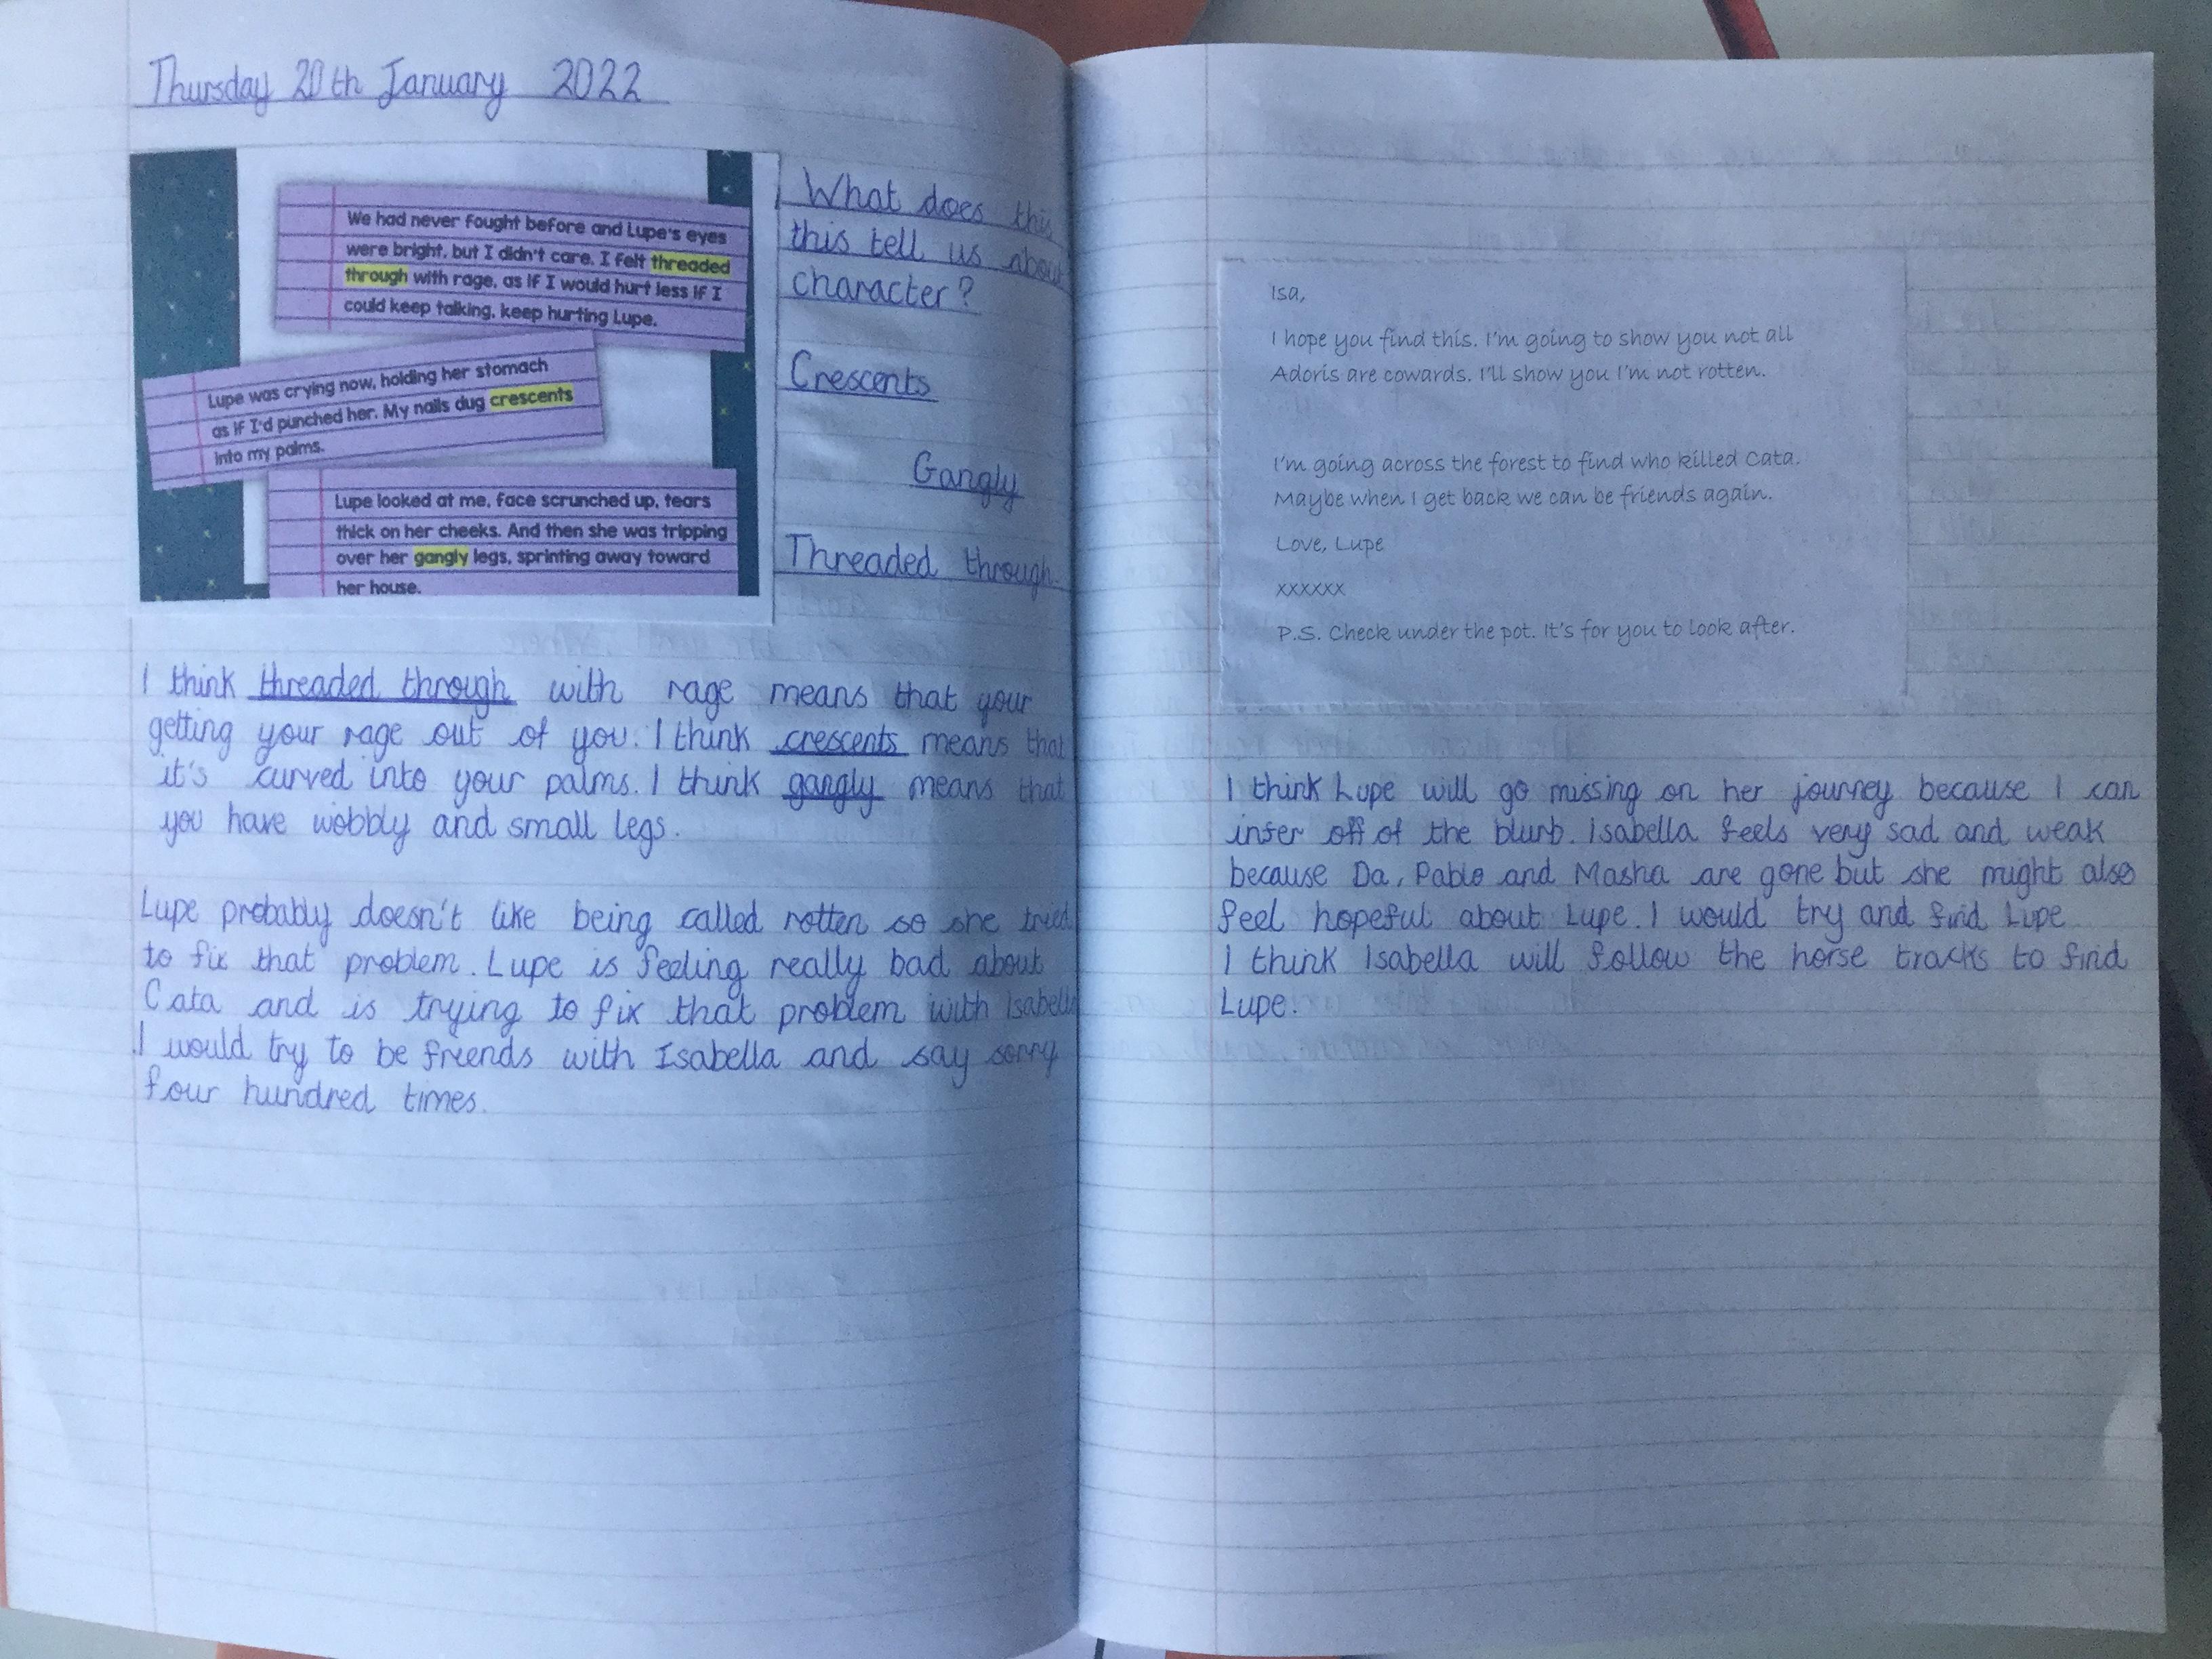 Thursday 20th January 2022
We had never fought before and Lupe's eyes
were bright, but I didn't care. I felt threaded
through with rage, as if I would hurt less if I
could keep talking, keep hurting Lupe.
Lupe was crying now, holding her stomach
as if I'd punched her. My nails dug crescents
into my palms.
Lupe looked at me, face scrunched up, tears
thick on her cheeks. And then she was tripping
over her gangly legs, sprinting away toward
her house.
What does this
this tell us about
character?
Crescents
Gangly
Threaded through.
I think threaded through with rage means that your
getting your rage out of you. I think crescents means that
it's curved into your palms. I think gangly means that
you have wobbly and small legs.
Lupe probably doesn't like being called rotten so she tried
to fix that problem. Lupe is feeling really bad about
Cata and is trying to fix that problem with Isabella
I would try to be friends with Isabella and say sorry
four hundred times.
Isa,
I hope you find this. I'm going to show you not all
Adoris are cowards. I'll show you I'm not rotten.
I'm going across the forest to find who killed Cata.
Maybe when I get back we can be friends again.
Love, Lupe
xxxxxx
P.S. Check under the pot. It's for you to look after.
I think Lupe will go missing on her journey because I can
infer off of the blurb. Isabella feels very sad and weak
because Da, Pablo and Masha are gone but she might also
feel hopeful about Lupe. I would try and find Lupe
I think Isabella will follow the horse tracks to find
Lupe.